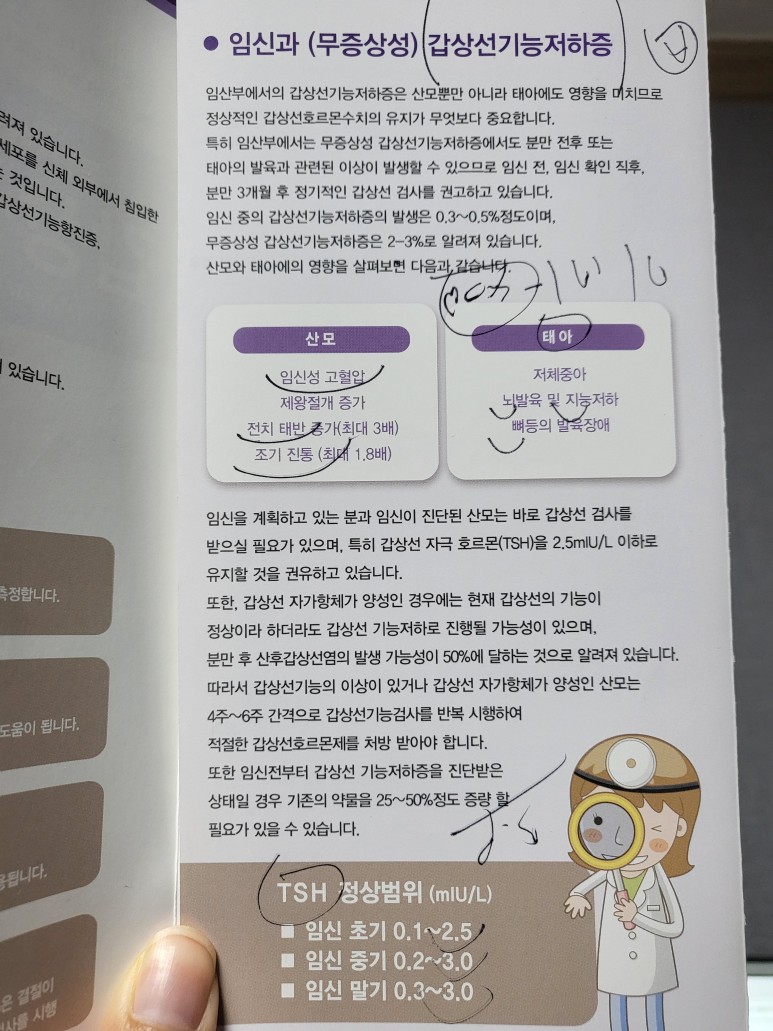 • 임신과 (무증상성) 갑상선기능저하증
임산부에서의 갑상선기능저하증은 산모뿐만 아니라 태아에도 영향을 미치므로
정상적인 갑상선호르몬수치의 유지가 무엇보다 중요합니다.
특히 임산부에서는 무증상성 갑상선기능저하증에서도 분만 전후 또는
태아의 발육과 관련된 이상이 발생할 수 있으므로 임신 전, 임신 확인 직후,
분만 3개월 후 정기적인 갑상선 검사를 권고하고 있습니다.
임신 중의 갑상선기능저하증의 발생은 0.3~0.5%정도이며,
무증상성 갑상선기능저하증은 2-3%로 알려져 있습니다.
산모와 태아에의 영향을 살펴보면 다음과 같습니다.
산모
임신성 고혈압
제왕절개 증가
전치 태반 증가(최대 3배)
조기 진통 (최대 1.8배)
태아
저체중아
뇌발육 및 지능저하
뼈등의 발육장애
임신을 계획하고 있는 분과 임신이 진단된 산모는 바로 갑상선 검사를
받으실 필요가 있으며, 특히 갑상선 자극 호르몬(TSH)을 2.5mIU/L 이하로
유지할 것을 권유하고 있습니다.
또한, 갑상선 자가항체가 양성인 경우에는 현재 갑상선의 기능이
정상이라 하더라도 갑상선 기능저하로 진행될 가능성이 있으며,
분만 후 산후갑상선염의 발생 가능성이 50%에 달하는 것으로 알려져 있습니다.
따라서 갑상선기능의 이상이 있거나 갑상선 자가항체가 양성인 산모는
4주~6주 간격으로 갑상선기능검사를 반복 시행하여
적절한 갑상선호르몬제를 처방 받아야 합니다.
또한 임신전부터 갑상선 기능저하증을 진단받은
상태일 경우 기존의 약물을 25~50%정도 증량 할
필요가 있을 수 있습니다.
TSH 정상범위 (mIU/L)
■ 임신 초기 0.1~2.5
■ 임신 중기 0.2~3.0
■ 임신 말기 0.3~3.0
려져 있습니다.
세포를 신체 외부에서 침입한
것입니다.
갑상선기능항진증,
있습니다.
측정합니다.
도움이 됩니다.
용됩니다.
은 결절이
시행